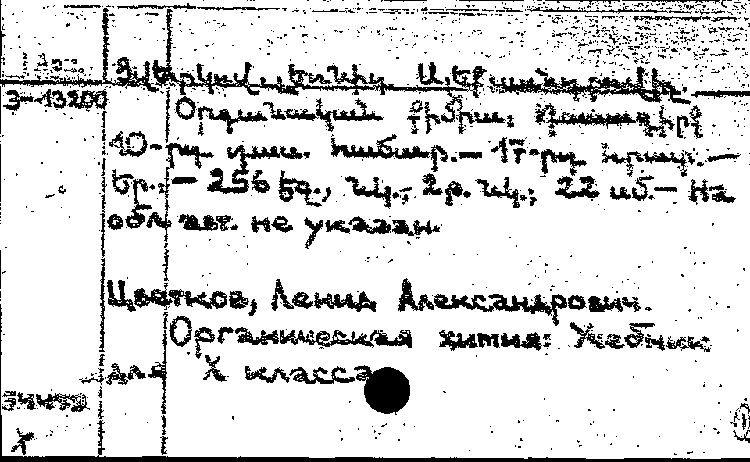 Ցվետկով, Լեոնիդ Ալեքսանդրովիչ.
Э-13200
Օրգանական քիմիա: Դասագիրք
10-րդ դաս. համար.— 17-րդ հրատ.—
Եր.: — 256 էջ., նկ., 2 թ. նկ.; 22 սմ.— На
обл авт. не указан.
Цветков, Леонид Александрович.
Органическая химия: Учебник
для X класса
54499
X